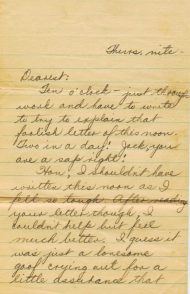 Thurs. nite -
Dearest:
Ten o'clock - just through
work and have to write
to try to explain that
foolish letter of this noon.
Two in a day! Jack, you
are a sap right!
Hon, I shouldn't have
written this noon as I
felt so tough. After reading
your letter though, I
couldn't help but feel
much better. I guess it
was just a lonesome
goof crying out for a
little assurance that